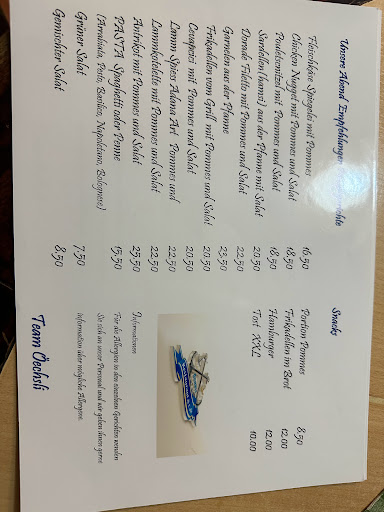 Unsere Abend Empfehlungen
Fleischkäse Spiegelei mit Pommes 16.50
Chicken Nugget mit Pommes und Salat 18.50
Pouletschnitzel mit Pommes und Salat 18.50
Sardellen (hamsi) aus der Pfanne mit Salat 20.50
Dorade Filetto mit Pommes und Salat 22.50
Garnelen aus der Pfanne 23.50
Frikadellen vom Grill mit Pommes und Salat 20.50
Cevapcici mit Pommes und Salat 20.50
Lamm Spiess Adana Art Pommes und 22.50
Lammkoteletts mit Pommes und Salat 22.50
Antrikot mit Pommes und Salat 25.50
PASTA Spaghetti oder Penne 15.50
(Arrabiata, Pesto, Basilico, Napoletana, Bolognese)
Grüner Salat 7.50
Gemischter Salat 8.50
Snacks
Portion Pommes 8.50
Frikadellen im Brot 12.00
Hamburger 12.00
Tost XXL 10.00
Informationen
Für die Allergien in den einzelnen Gerichten wenden
Sie sich an unser Personal und wir geben ihnen gerne
information über mögliche Allergene.
Team Öechsli